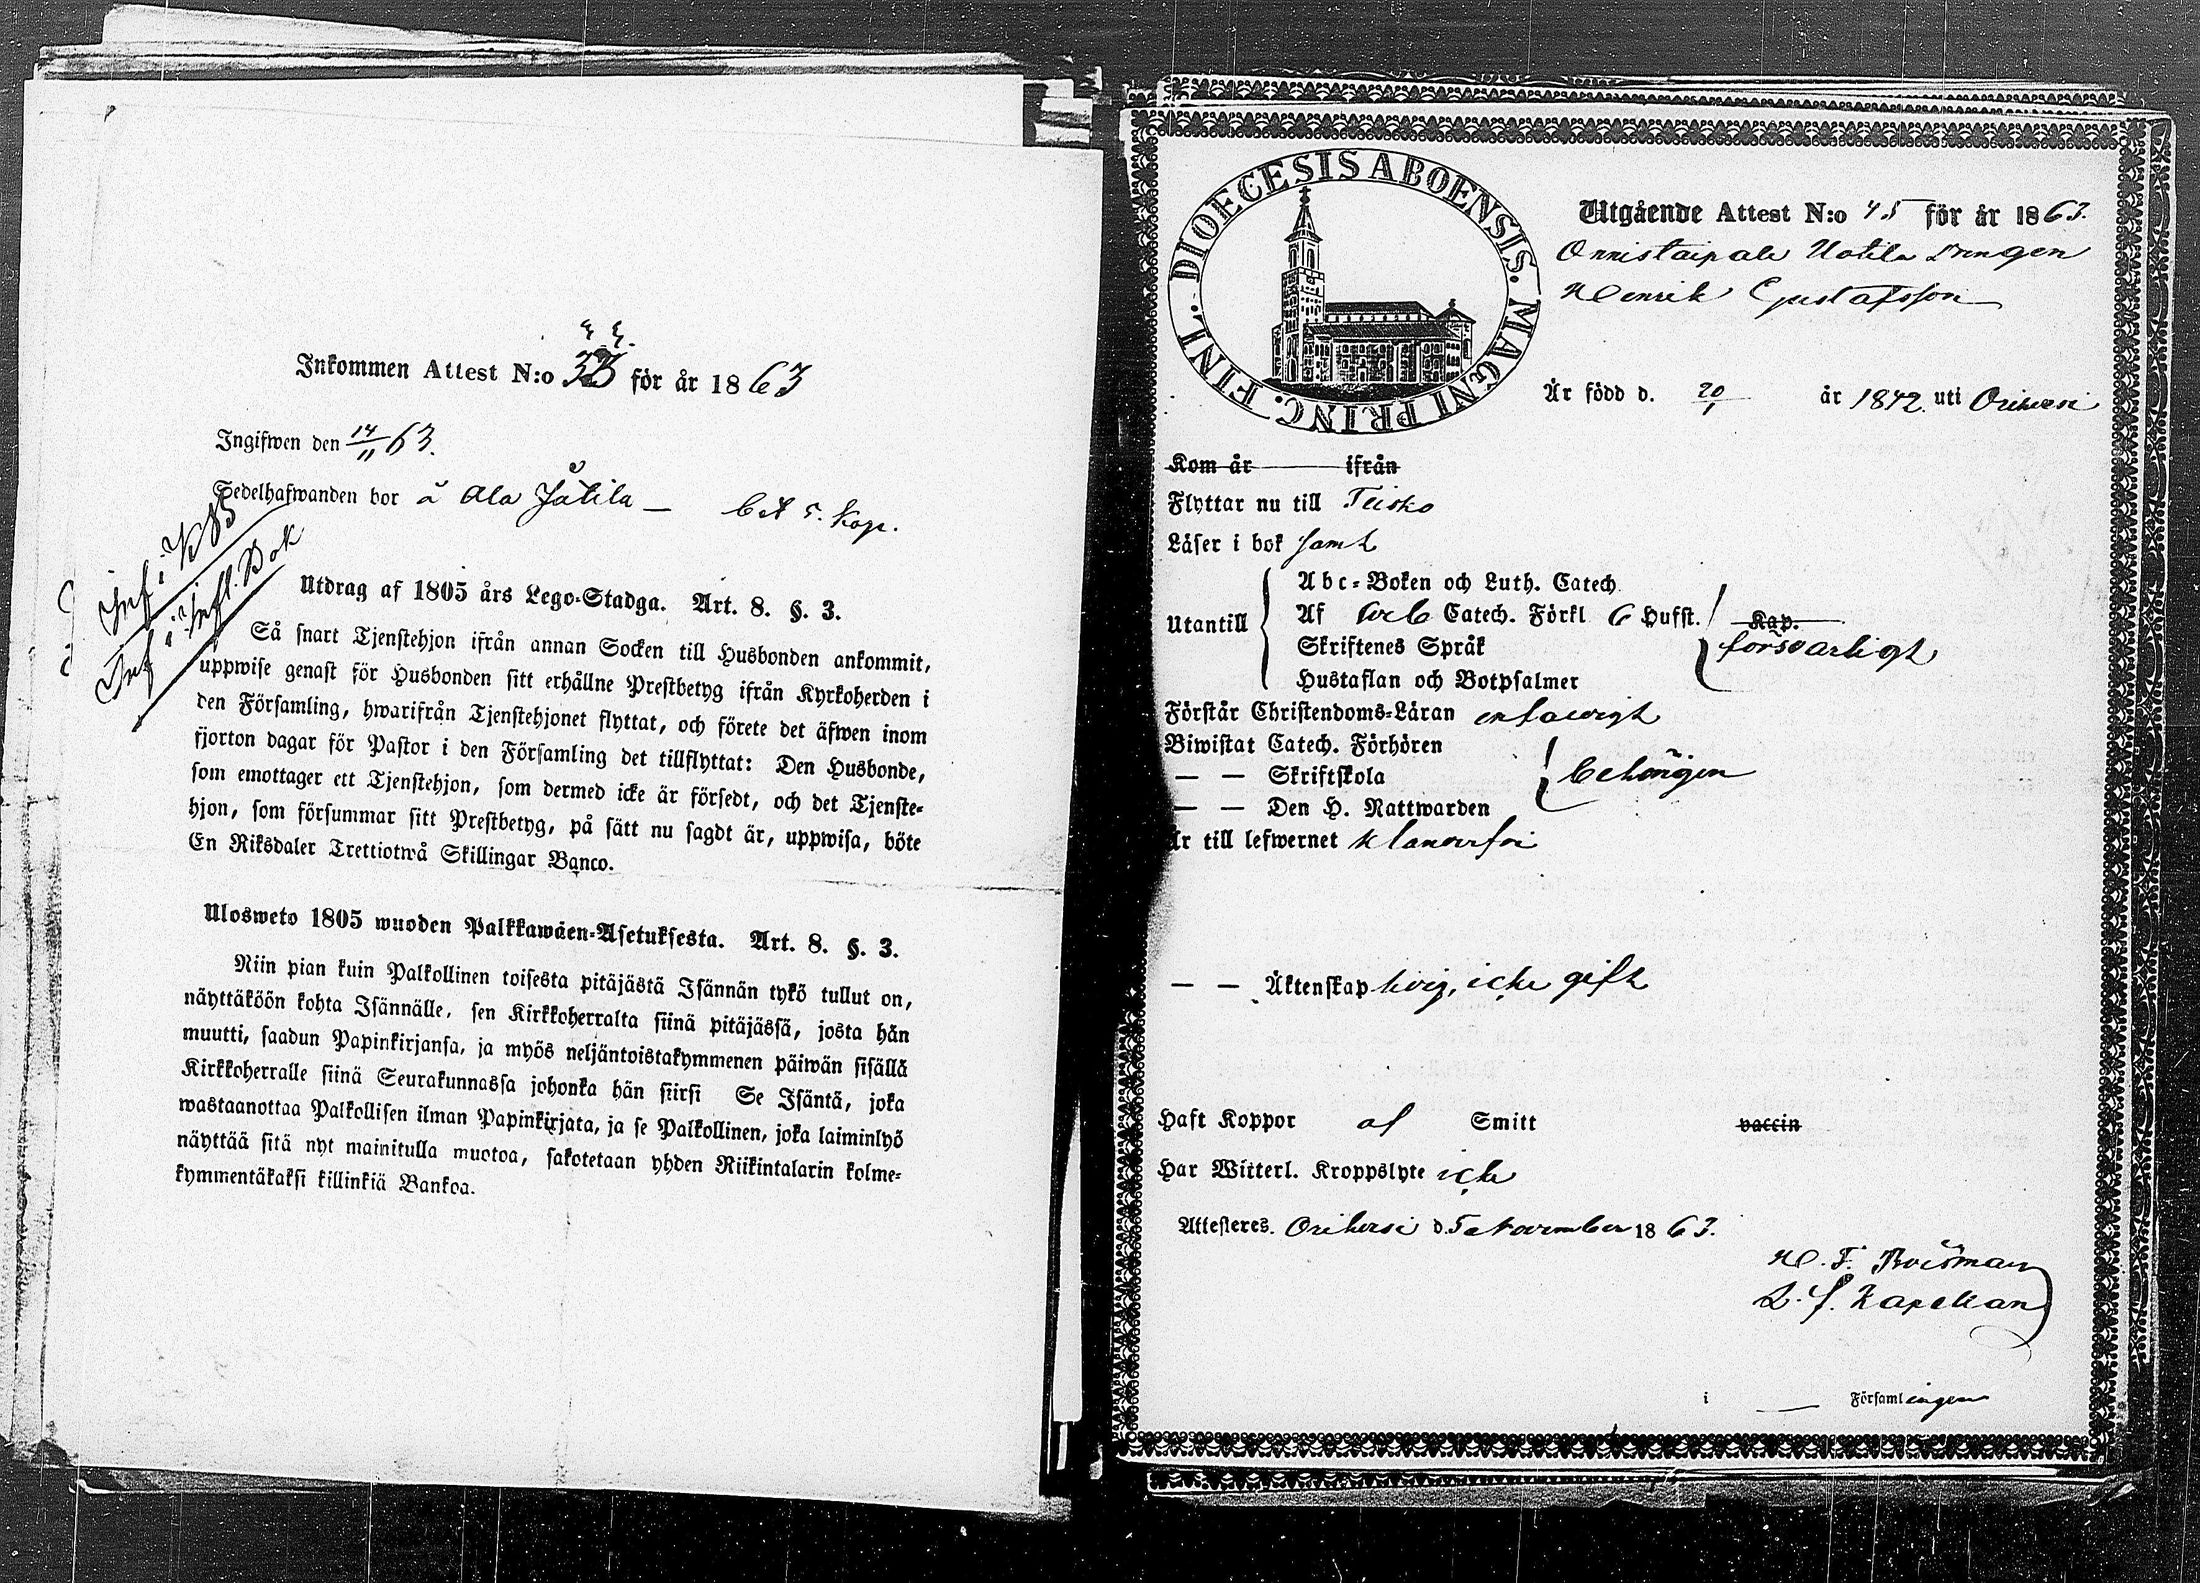 Inkommen Attest N:o 33 för år 1863
Ingifwen den 14/11 63.
Sedelhafwanden bor å Ala Jätila — bet 5. Kop.
Inf i K B
Inf i Infl. Bok
Utdrag af 1805 års Lego-Stadga. Art. 8. §. 3.
Så snart Tjenstehjon ifrån annan Socken till Husbonden ankommit,
uppwise genast för Husbonden sitt erhållne Prestbetyg ifrån Kyrkoherden i
den Församling, hwarifrån Tjenstehjonet flyttat, och förete det äfwen inom
fjorton dagar för Pastor i den Församling det tillflyttat: Den Husbonde,
som emottager ett Tjenstehjon, som dermed icke är försedt, och det Tjenste-
hjon, som försummar sitt Prestbetyg, på sätt nu sagdt är, uppwisa, böte
En Riksdaler Trettiotwå Skillingar Banco.
Ulosweto 1805 wuoden Palkkawäen-Asetuksesta. Art. 8. §. 3.
Niin pian kuin Palkollinen toisesta pitäjästä Isännän tykö tullut on,
näyttäköön kohta Isännälle, sen Kirkkoherralta siinä pitäjässä, josta hän
muutti, saadun Papinkirjansa, ja myös neljäntoistakymmenen päiwän sisällä
Kirkkoherralle siinä Seurakunnassa johonka hän siirsi Se Isäntä, joka
wastaanottaa Palkollisen ilman Papinkirjata, ja se Palkollinen, joka laiminlyö
näyttää sitä nyt mainitulla muotoa, sakotetaan yhden Riikintalarin kolme-
kymmentäkaksi killinkiä Bankoa.
DIOECESIS ABOENSIS. MAGNI PRINC. FINL.
Utgående Attest N:o 45 för år 1863.
Onnistaipale Uotila Drengen
Henrik Gustafsson
Är född d. 20/1 år 1842. uti Orihvesi
Kom år ifrån
Flyttar nu till Teisko
Läser i bok samt
Utantill
Abc-Boken och Luth. Catech.
Af Catech. Förkl 6 Hufst. Kap.
Skriftenes Språk försvarligt
Hustaflan och Botpsalmer
Förstår Christendoms-Läran enfaldigt
Biwistat Catech. Förhören
— — Skriftskola behörigen
— — Den H. Nattwarden
Är till lefwernet klanderfri
— — Äktenskap ledig, icke gift
Haft Koppor af Smitt vaccin
Har Witterl. Kroppslyte icke
Attesteres. Orihvesi d. 5 November 1863.
H. F. Roisman
L. f. Kapellan
i — Församlingen